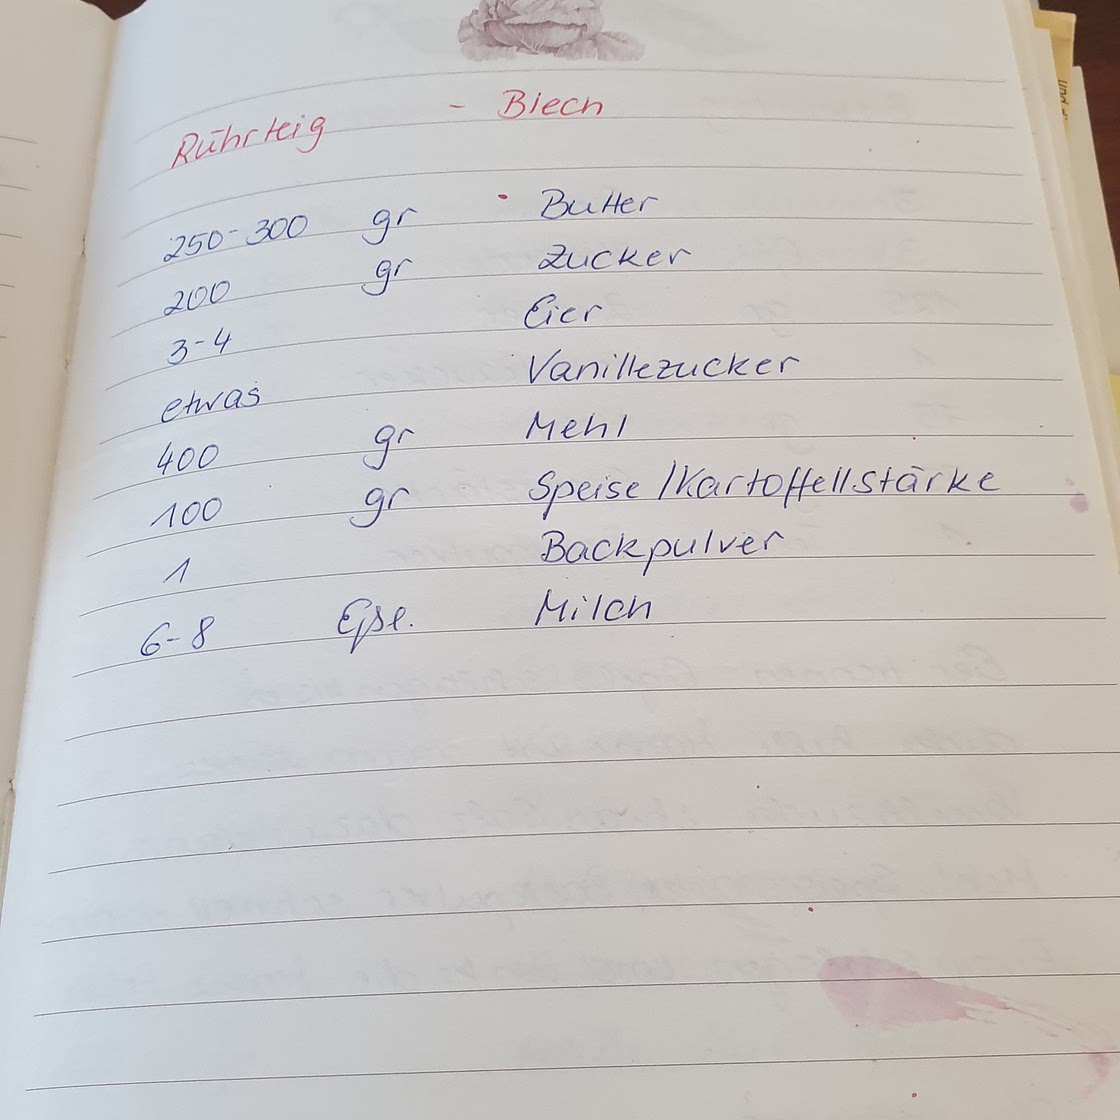 Rührteig - Blech
250-300 gr Butter
200 gr Zucker
3-4 Eier
etwas Vanillezucker
400 gr Mehl
100 gr Speise/Kartoffellstärke
1 Backpulver
6-8 Eßl. Milch